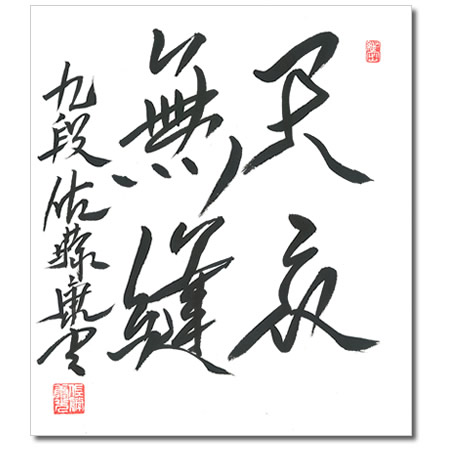 天衣
無縫
九段佐藤康光